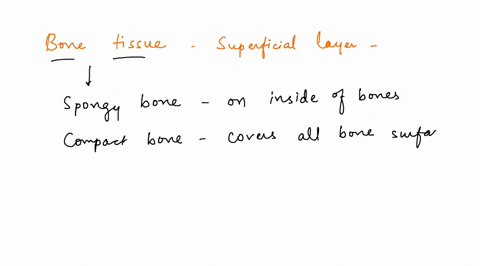 Bone tissue - Superficial layer -
Spongy bone - on inside of bones
Compact bone - covers all bone surfa